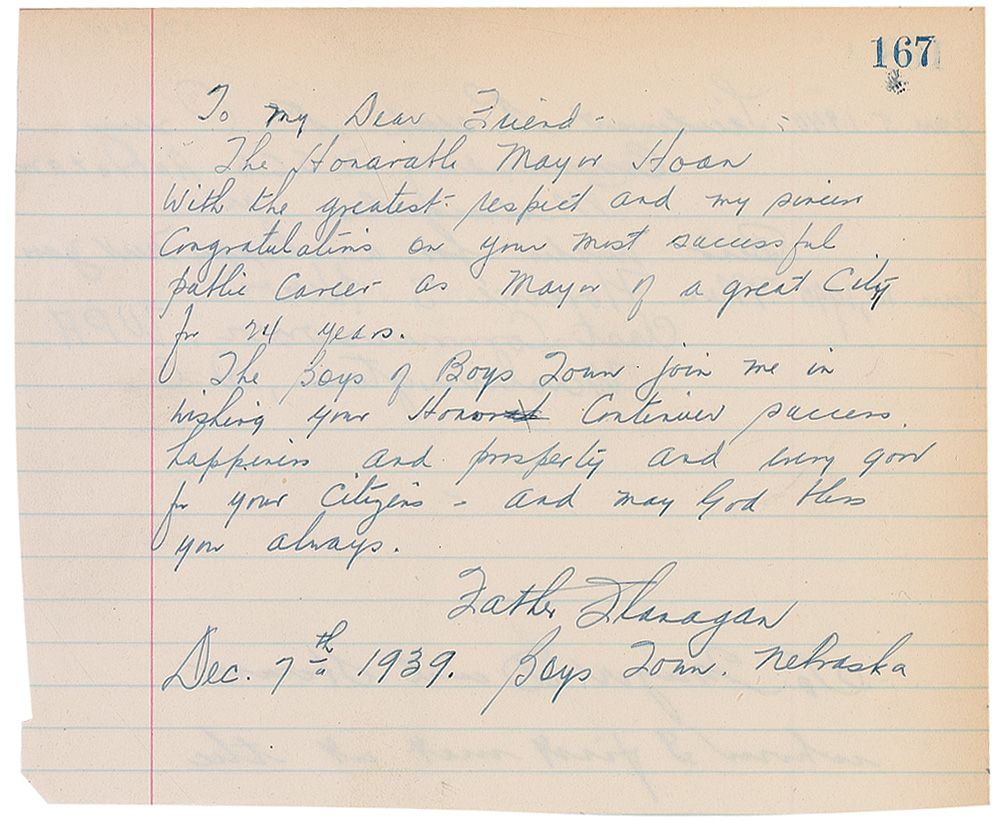 167
To my Dear Friend-
The Honorable Mayor Hoan
With the greatest respect and my sincere
Congratulations on your most successful
public career as Mayor of a great City
for 24 years.
The Boys of Boys Town join me in
wishing your Honor Continued success,
happiness and prosperity and every good
for your Citizens - and may God bless
you always.
Father Flanagan
Dec. 7th 1939. Boys Town. Nebraska